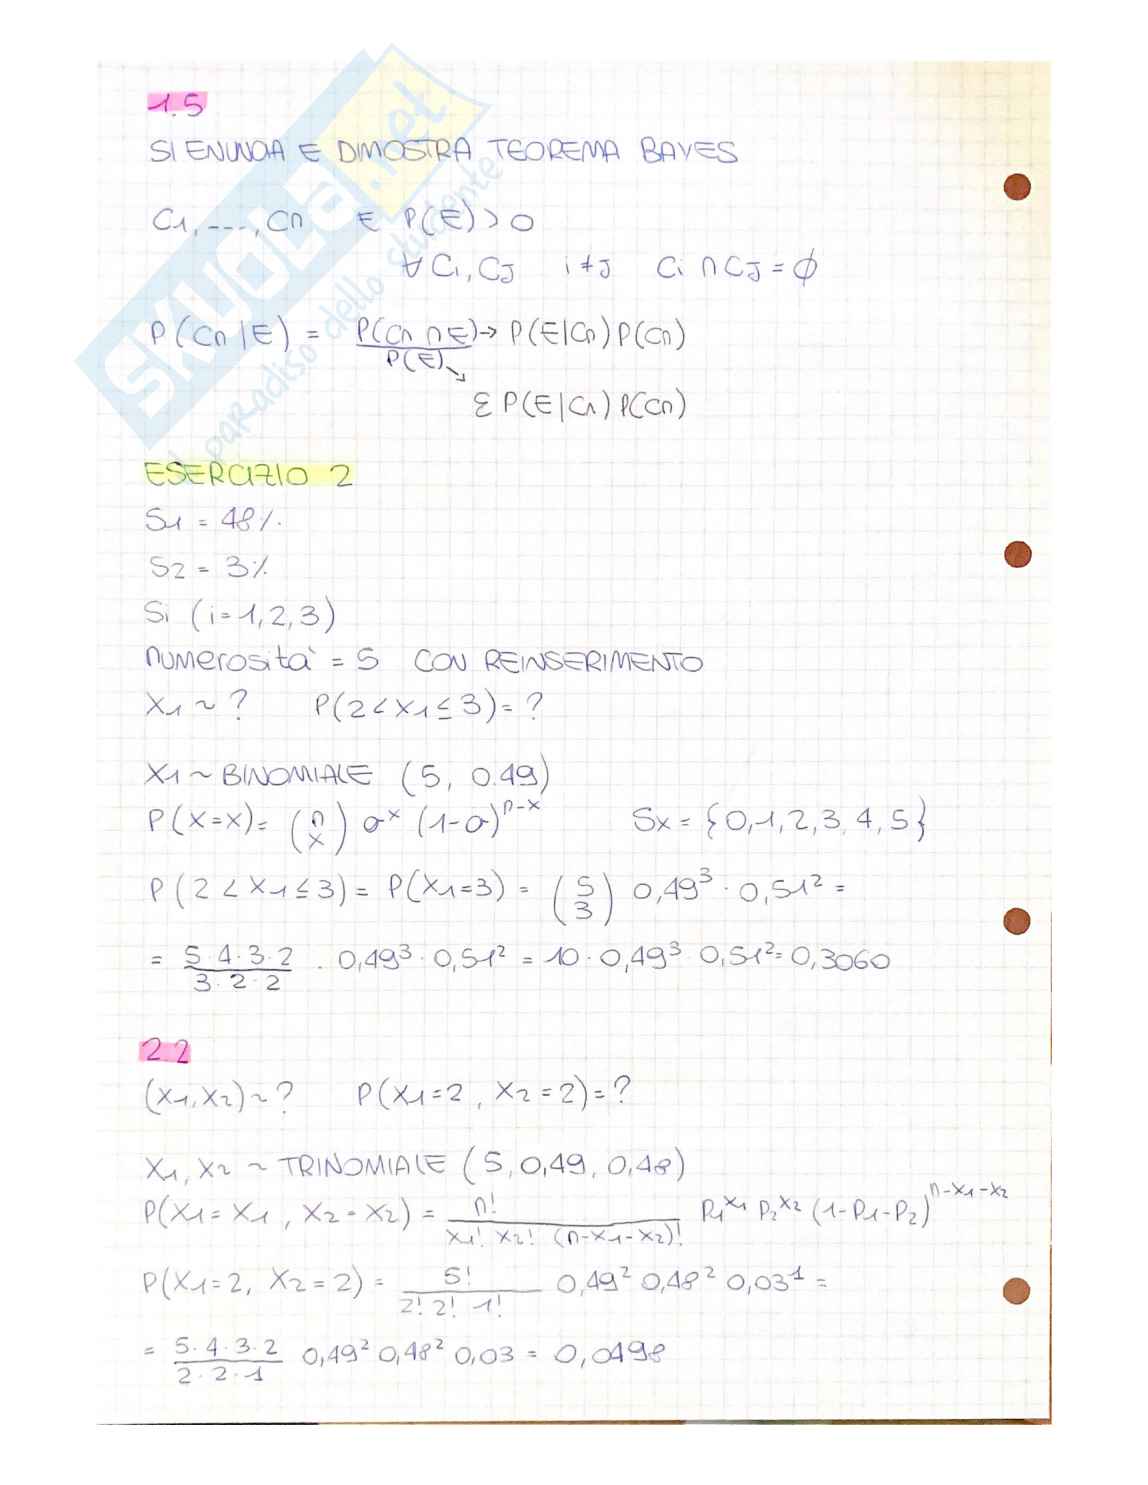 1.5
SI ENUNCIA E DIMOSTRA TEOREMA BAYES
C1, ---, Cn E P(E) > 0
∀ Ci, CJ i ≠ J Ci ∩ CJ = ∅
P(Cn|E) = P(Cn ∩ E) → P(E|Cn) P(Cn)
P(E) ↘
Σ P(E|Cn) P(Cn)
ESERCIZIO 2
S1 = 48%.
S2 = 3%
Si (i=1,2,3)
numerosità = 5 CON REINSERIMENTO
X1 ~ ? P(2 < X1 ≤ 3) = ?
X1 ~ BINOMIALE (5, 0.49)
P(X=x) = (n x) σ^x (1-σ)^n-x Sx = {0,1,2,3,4,5}
P(2 < X1 ≤ 3) = P(X1=3) = (5 3) 0,49³ · 0,51² =
= 5·4·3·2 / 3·2·2 · 0,49³ · 0,51² = 10 · 0,49³ · 0,51² = 0,3060
2.2
(X1,X2) ~ ? P(X1=2, X2=2) = ?
X1, X2 ~ TRINOMIALE (5, 0,49, 0,48)
P(X1=X1, X2=X2) = n! / X1! X2! (n-X1-X2)! P1^X1 P2^X2 (1-P1-P2)^n-X1-X2
P(X1=2, X2=2) = 5! / 2! 2! 1! 0,49² 0,48² 0,03¹ =
= 5·4·3·2 / 2·2·1 0,49² 0,48² 0,03 = 0,0498
SKUOLA.net
il paradiso dello studente